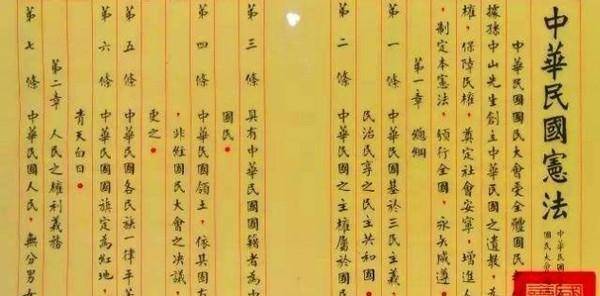 中華民國憲法
中華民國
國民大會
中華民國國民大會受全體國民
據孫中山先生創立中華民國之遺教,
權,保障民權,奠定社會安寧,增進人
,制定本憲法,頒行全國,永矢咸遵。
第一章 總綱
第一條 中華民國基於三民主義,
民治民享之民主共和國。
第二條 中華民國之主權屬於國
第三條 具有中華民國國籍者為中
國民。
第四條 中華民國領土,依其固有
,非經國民大會之決議,
更之。
第五條 中華民國各民族一律平
第六條 中華民國國旗定為紅地,
青天白日
第二章 人民之權利義務
第七條 中華民國人民,無分男